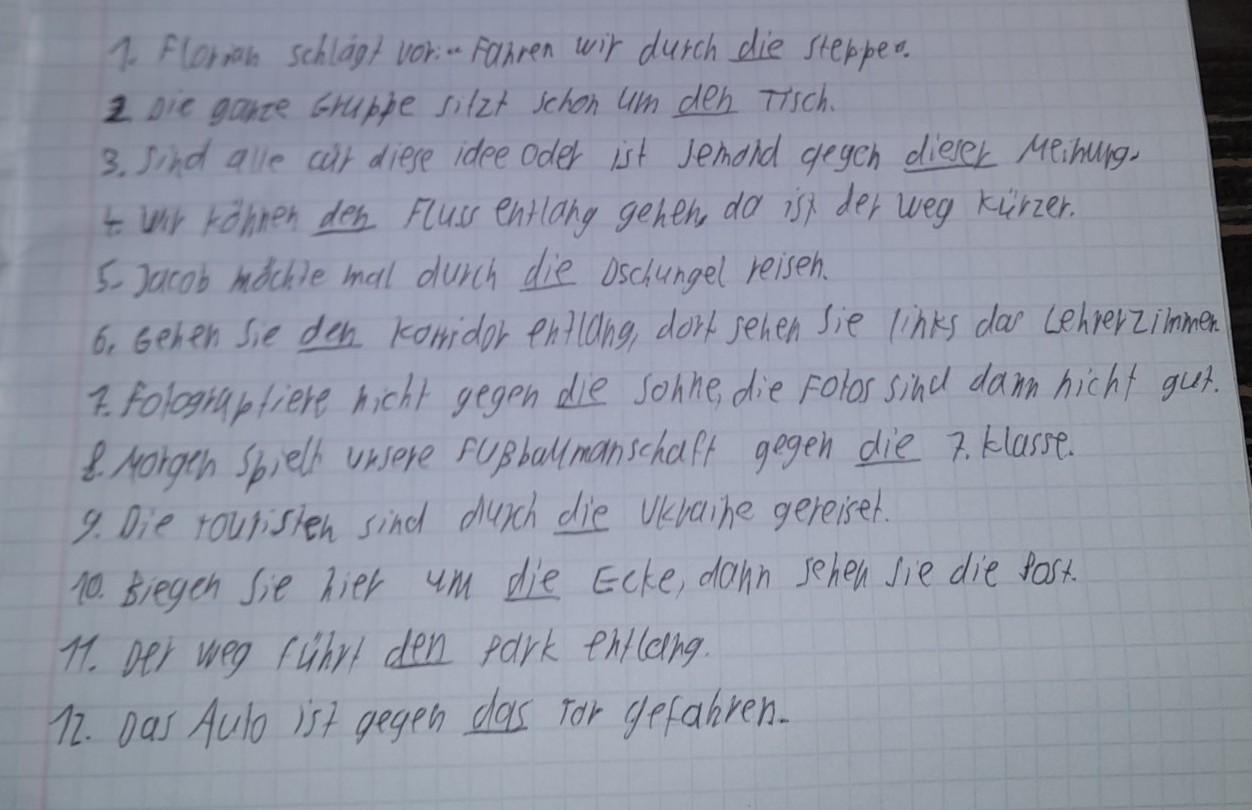 1. Florian schlägt vor: „Fahren wir durch die Steppe".
2 Die ganze Gruppe sitzt schon um den Tisch.
3. Sind alle für diese idee oder ist Jemand gegen dieser Meinung.
4. Wir können den Fluss entlang gehen, da ist der weg kürzer.
5. Jacob möchte mal durch die Dschungel reisen.
6. Gehen Sie den Korridor entlang, dort sehen Sie links das Lehrerzimmer.
7. Fotographiere nicht gegen die Sonne, die Fotos sind dann nicht gut.
8. Morgen spielt unsere Fußballmanschaft gegen die 7. Klasse.
9. Die Touristen sind durch die Ukraine gereiset.
10. Biegen Sie hier um die Ecke, dann sehen Sie die Post.
11. Der weg führt den Park entlang.
12. Das Auto ist gegen das Tor gefahren.